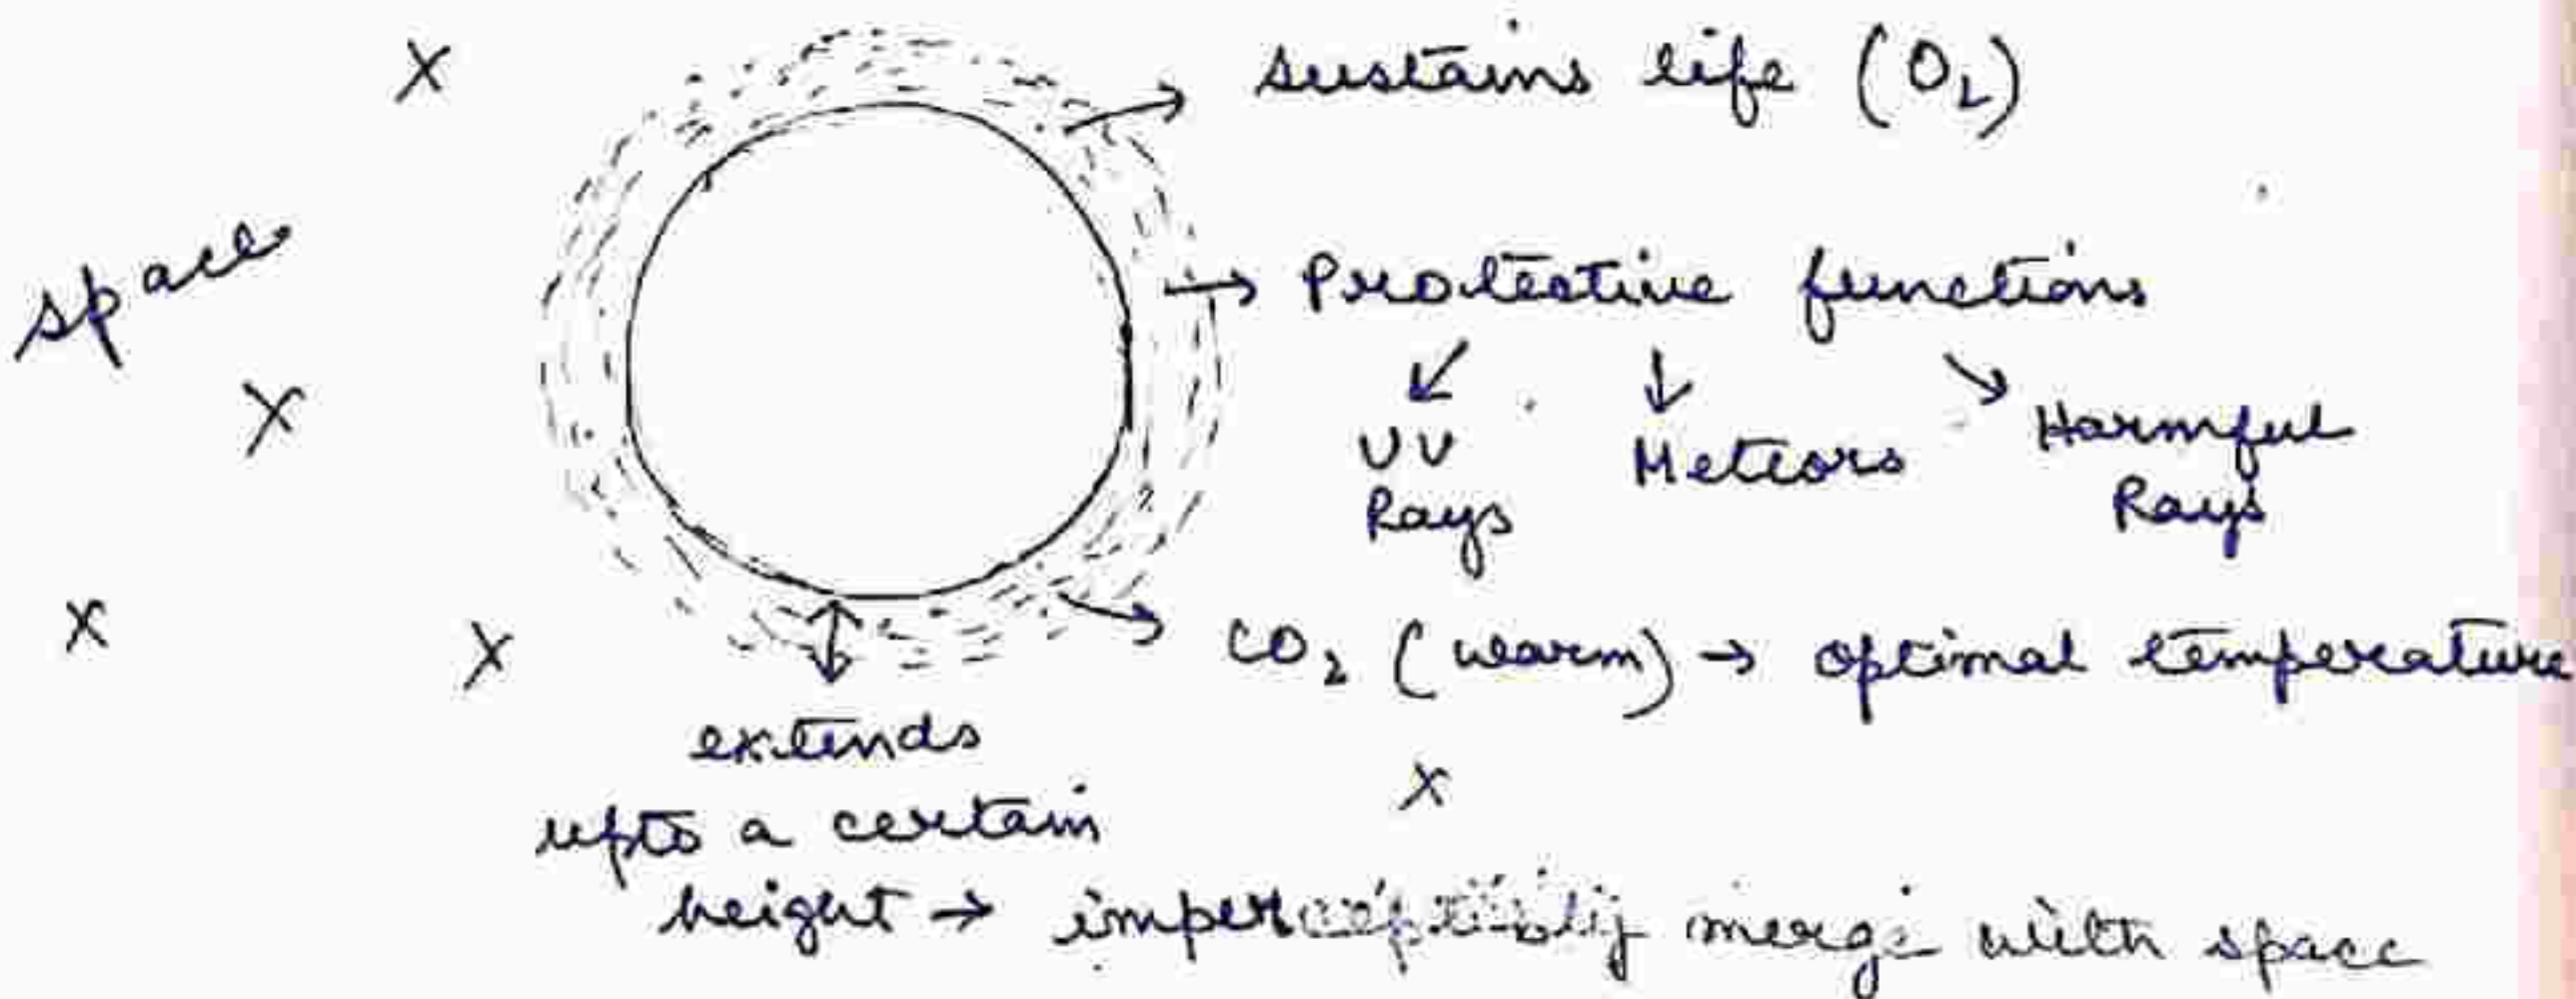 X
sustains life (O2)
space
→ Protective functions
↙ ↓ ↘
UV Rays
Meteors
Harmful Rays
X
X
X
CO2 (warm) → optimal temperature
extends
upto a certain
X
height → imperceptibly merge with space